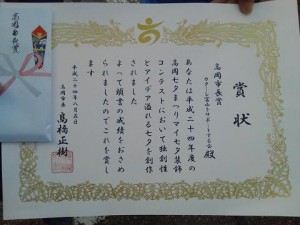 賞状
高岡市長賞
殿
あなたは平成二十四年度の
高岡七夕まつりマイ七夕装飾
コンテストにおいて独創性
とアイデア溢れる七夕を創作
されました
よって頭書の成績をおさめ
られましたのでこれを賞し
ます
平成二十四年八月五日
高岡市長
高橋正樹
高岡市長賞